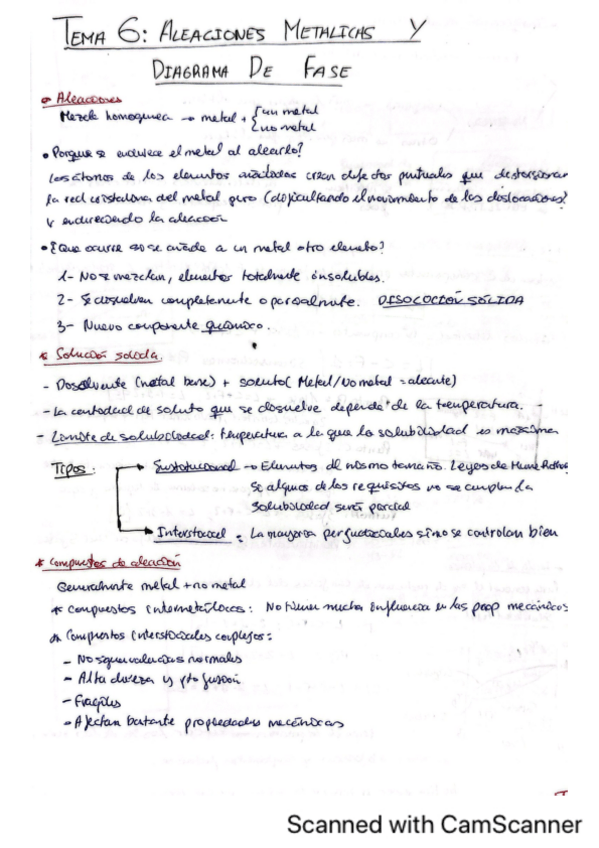 TEMA 6: ALEACIONES METALICAS Y
DIAGRAMA DE FASE
Aleaciones
Mezcla homogenea → metal + { un metal
no metal
• Porque se endurece el metal al alearlo?
Los átomos de los elementos añadidos crean defectos puntuales que destorsionan
la red cristalina del metal puro (dificultando el movimiento de las dislocaciones)
y endureciendo la aleacion
• ¿Que ocurre si se añade a un metal otro elemento?
1- No se mezclan, elementos totalmente insolubles.
2- Se disuelven completamente o parcialmente. DISOLUCIÓN SÓLIDA
3- Nuevo componente químico.
* Solución solida.
- Disolvente (metal base) + soluto (Metal/No metal = aleante)
- La cantidad de soluto que se disuelve depende de la temperatura.
- Limite de solubilidad: temperatura a la que la solubilidad es maxima
Tipos: Sustitucional → Elementos del mismo tamaño. Leyes de Hume-Roth
Se algunos de los requisitos no se cumplen la
solubilidad será parcial
Intersticial = La mayoria perjudiciales si no se controlan bien
* Compuestos de aleación
Generalmente metal + no metal
* Compuestos intermetálicos: No tienen mucha influencia en las prop mecánicas
* Compuestos intersticiales complejos:
- No siguen valencias normales
- Alta dureza y pto fusión
- Fragiles
- Afectan bastante propiedades mecánicas
Scanned with CamScanner